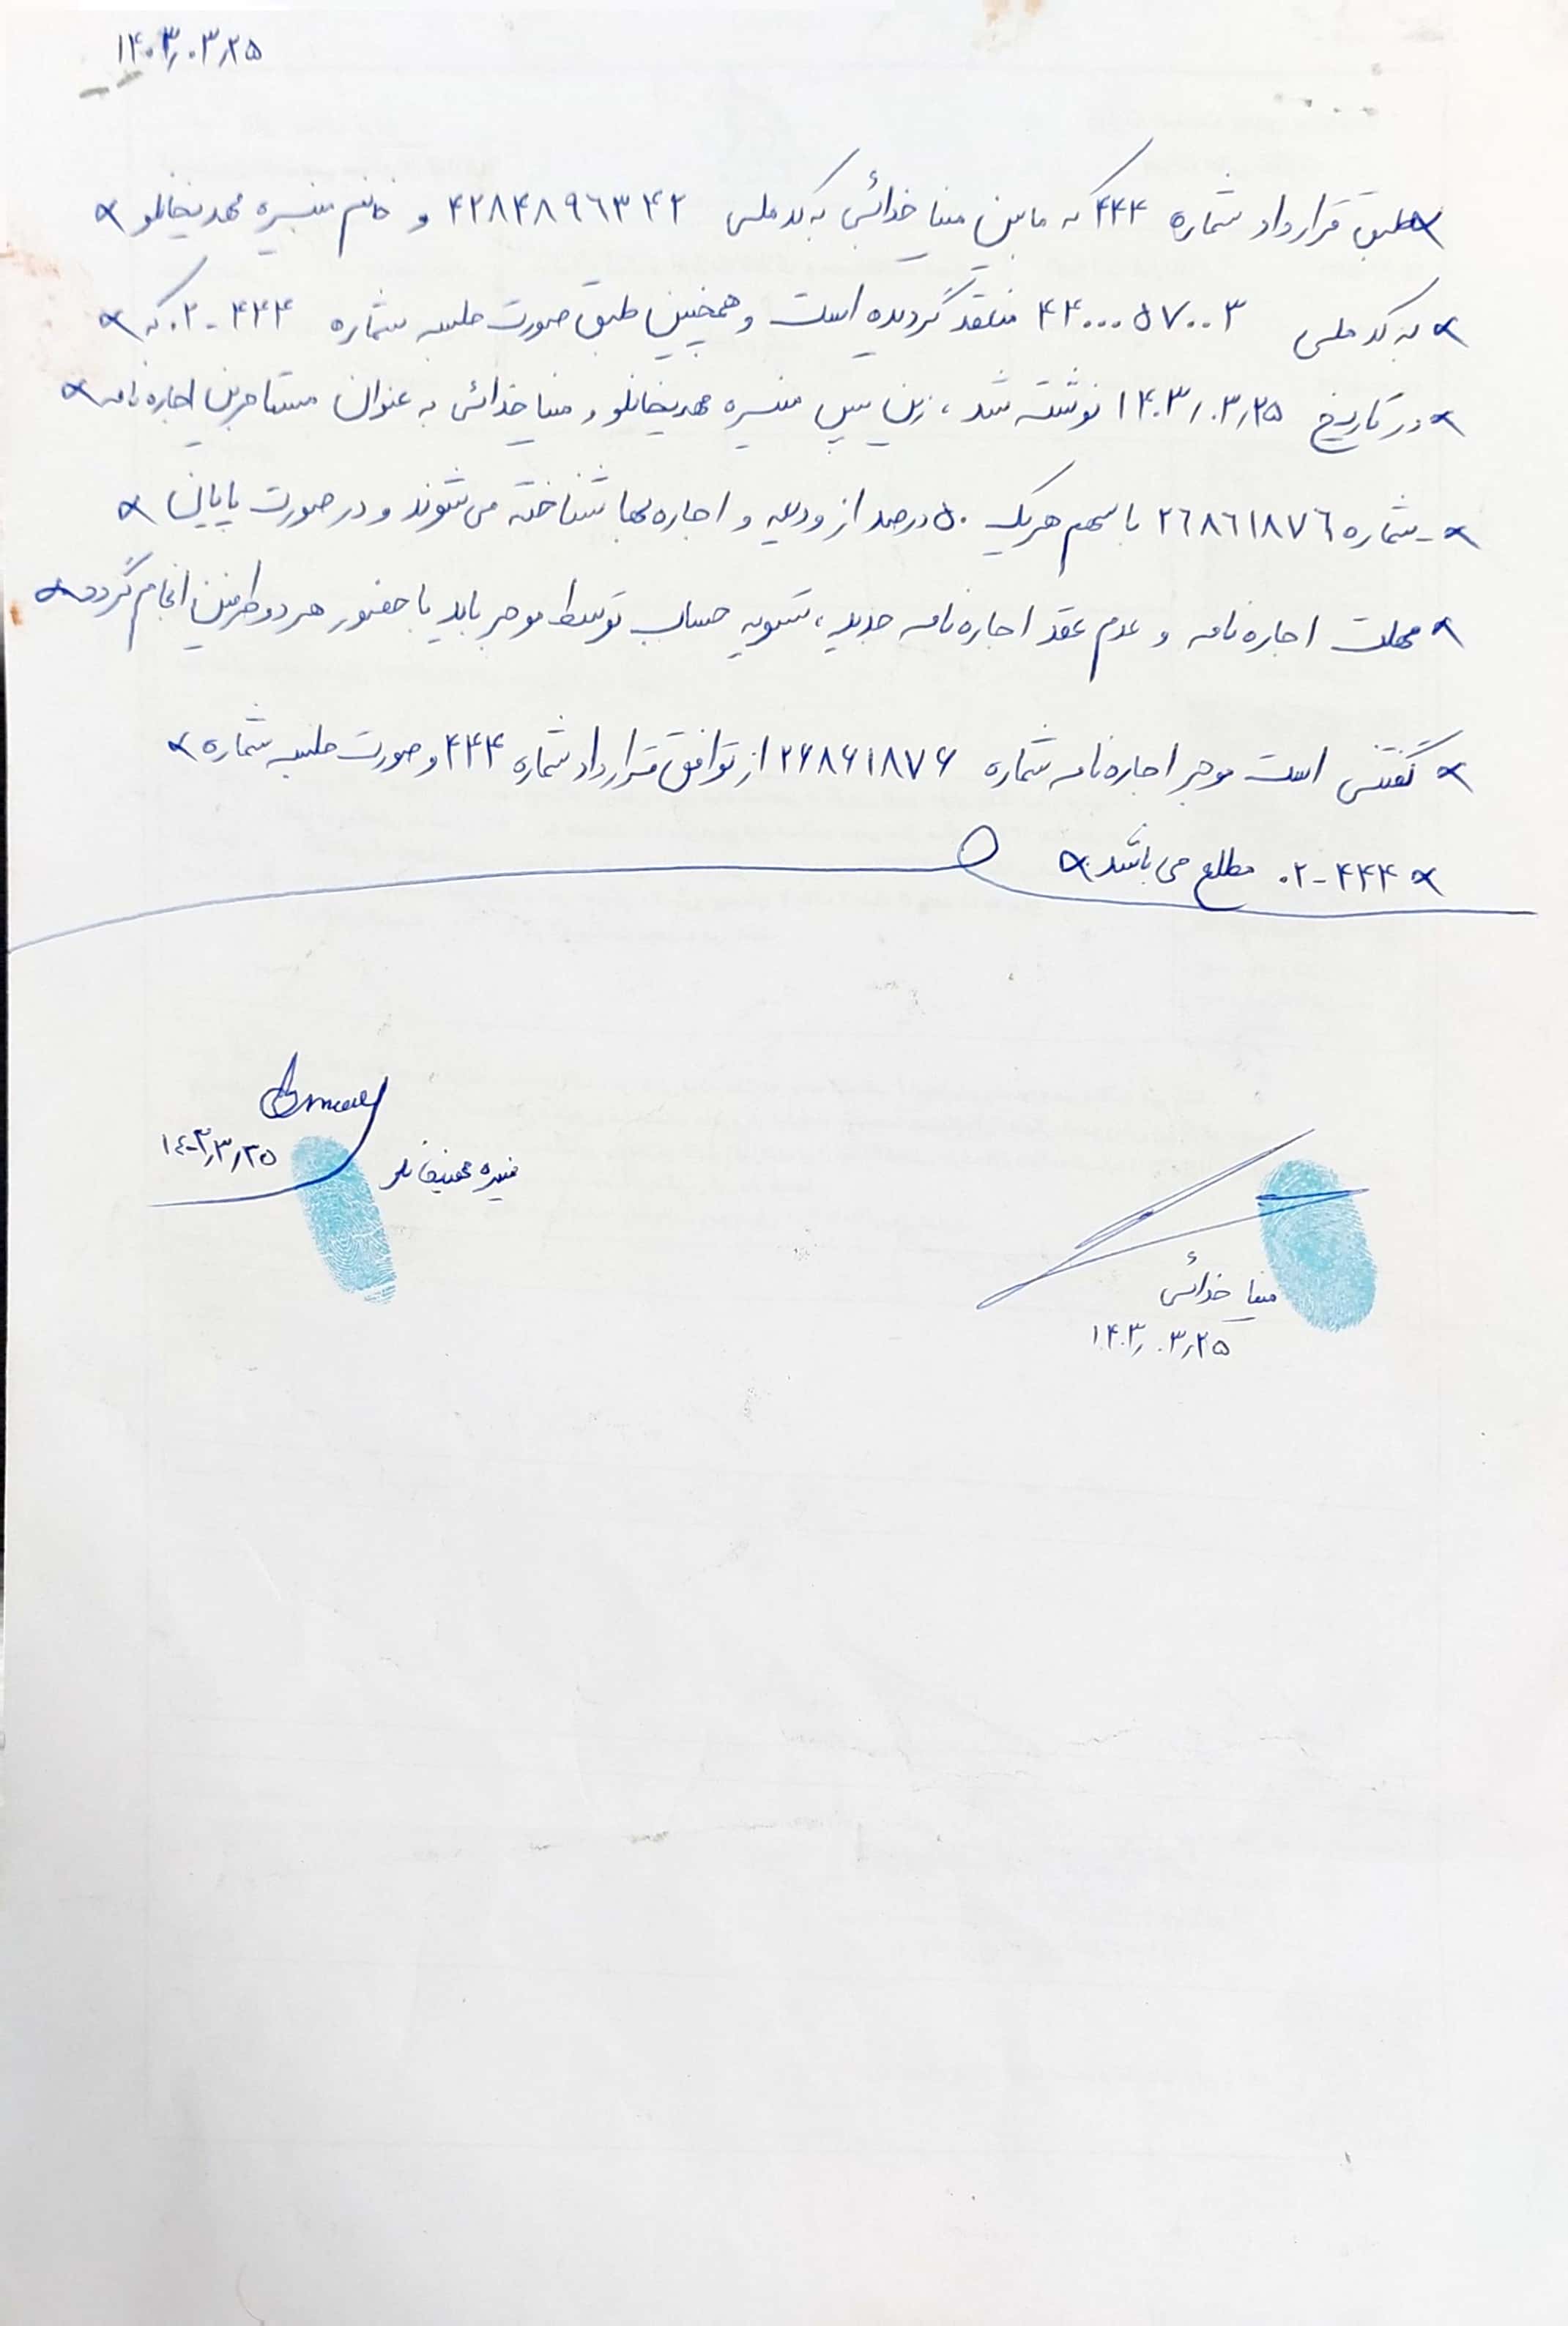 ۱۴۰۳٫۰۳٫۲۵
طبق قرارداد شماره ۴۴۴ که مابین مینا خدائی به کد ملی ۴۲۸۴۸۹۶۳۴۲ و خانم منیره مهدیخانلو
به کد ملی ۴۴۰۰۰۵۷۰۰۳ منعقد گردیده است و همچنین طبق صورت جلسه شماره ۴۴۴-۰۲ که
در تاریخ ۱۴۰۳٫۰۳٫۲۵ نوشته شد، زین پس منیره مهدیخانلو و مینا خدائی به عنوان مستاجرین اجاره نامه
شماره ۲۶۸۶۱۸۷۶ با سهم هریک ۵۰ درصد از ودیعه و اجاره بها شناخته می شوند و در صورت پایان
مهلت اجاره نامه و عدم عقد اجاره نامه جدید، تسویه حساب توسط موجر باید با حضور هر دو طرفین انجام گردد
گفتنی است موجر اجاره نامه شماره ۲۶۸۶۱۸۷۶ از توافق قرارداد شماره ۴۴۴ و صورت جلسه شماره
۴۴۴-۰۲ مطلع می باشد
مینا خدائی
۱۴۰۳٫۰۳٫۲۵
منیره مهدیخانلو
۱۴۰۳٫۳٫۲۵